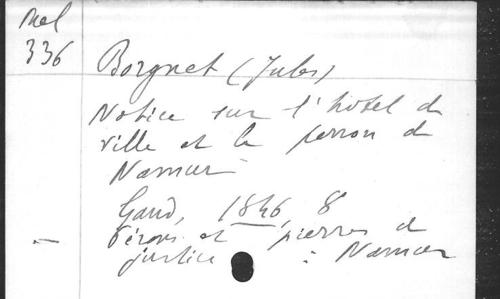 Mel
336
Borgnet (Jules)
Notice sur l'hotel de
ville et le perron de
Namur
Gand, 1846, 8°
Pérons et pierres de
justice : Namur